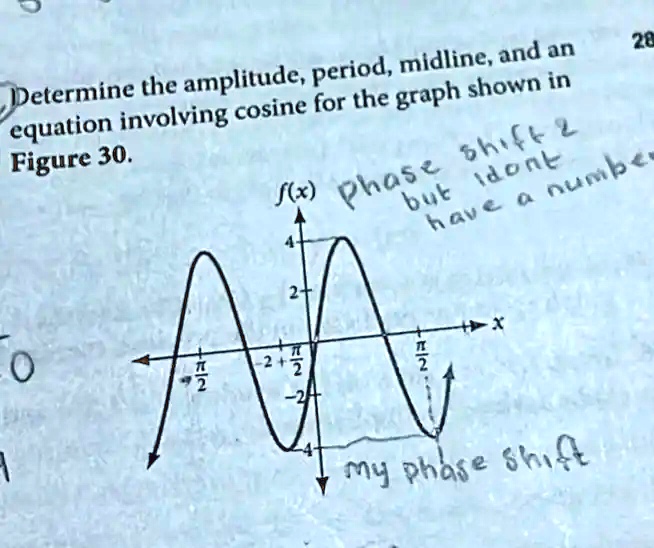 28
Determine the amplitude, period, midline, and an
equation involving cosine for the graph shown in
Figure 30.
phase shift 2
but idont
have a number
f(x)
4
2
x
π
2
-2+
π
2
π
2
-2
-4
my phase shift